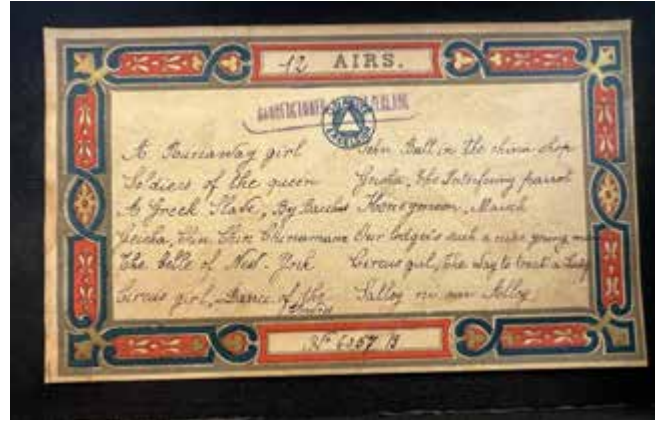 12 AIRS.
EXCELSIOR
A Runaway girl
Soldiers of the queen
A Greek Slave, By Bacchus
Geisha, Chin Chin Chinamann
The Belle of New-York
Circus girl, Dance of the
John Bull in the china shop
Geisha, The Interfering parrot
Honeymoon, March
Our lodger's such a nice young man
Circus girl, The way to treat a Lady
Salley in our Alley
Nº 6257 B